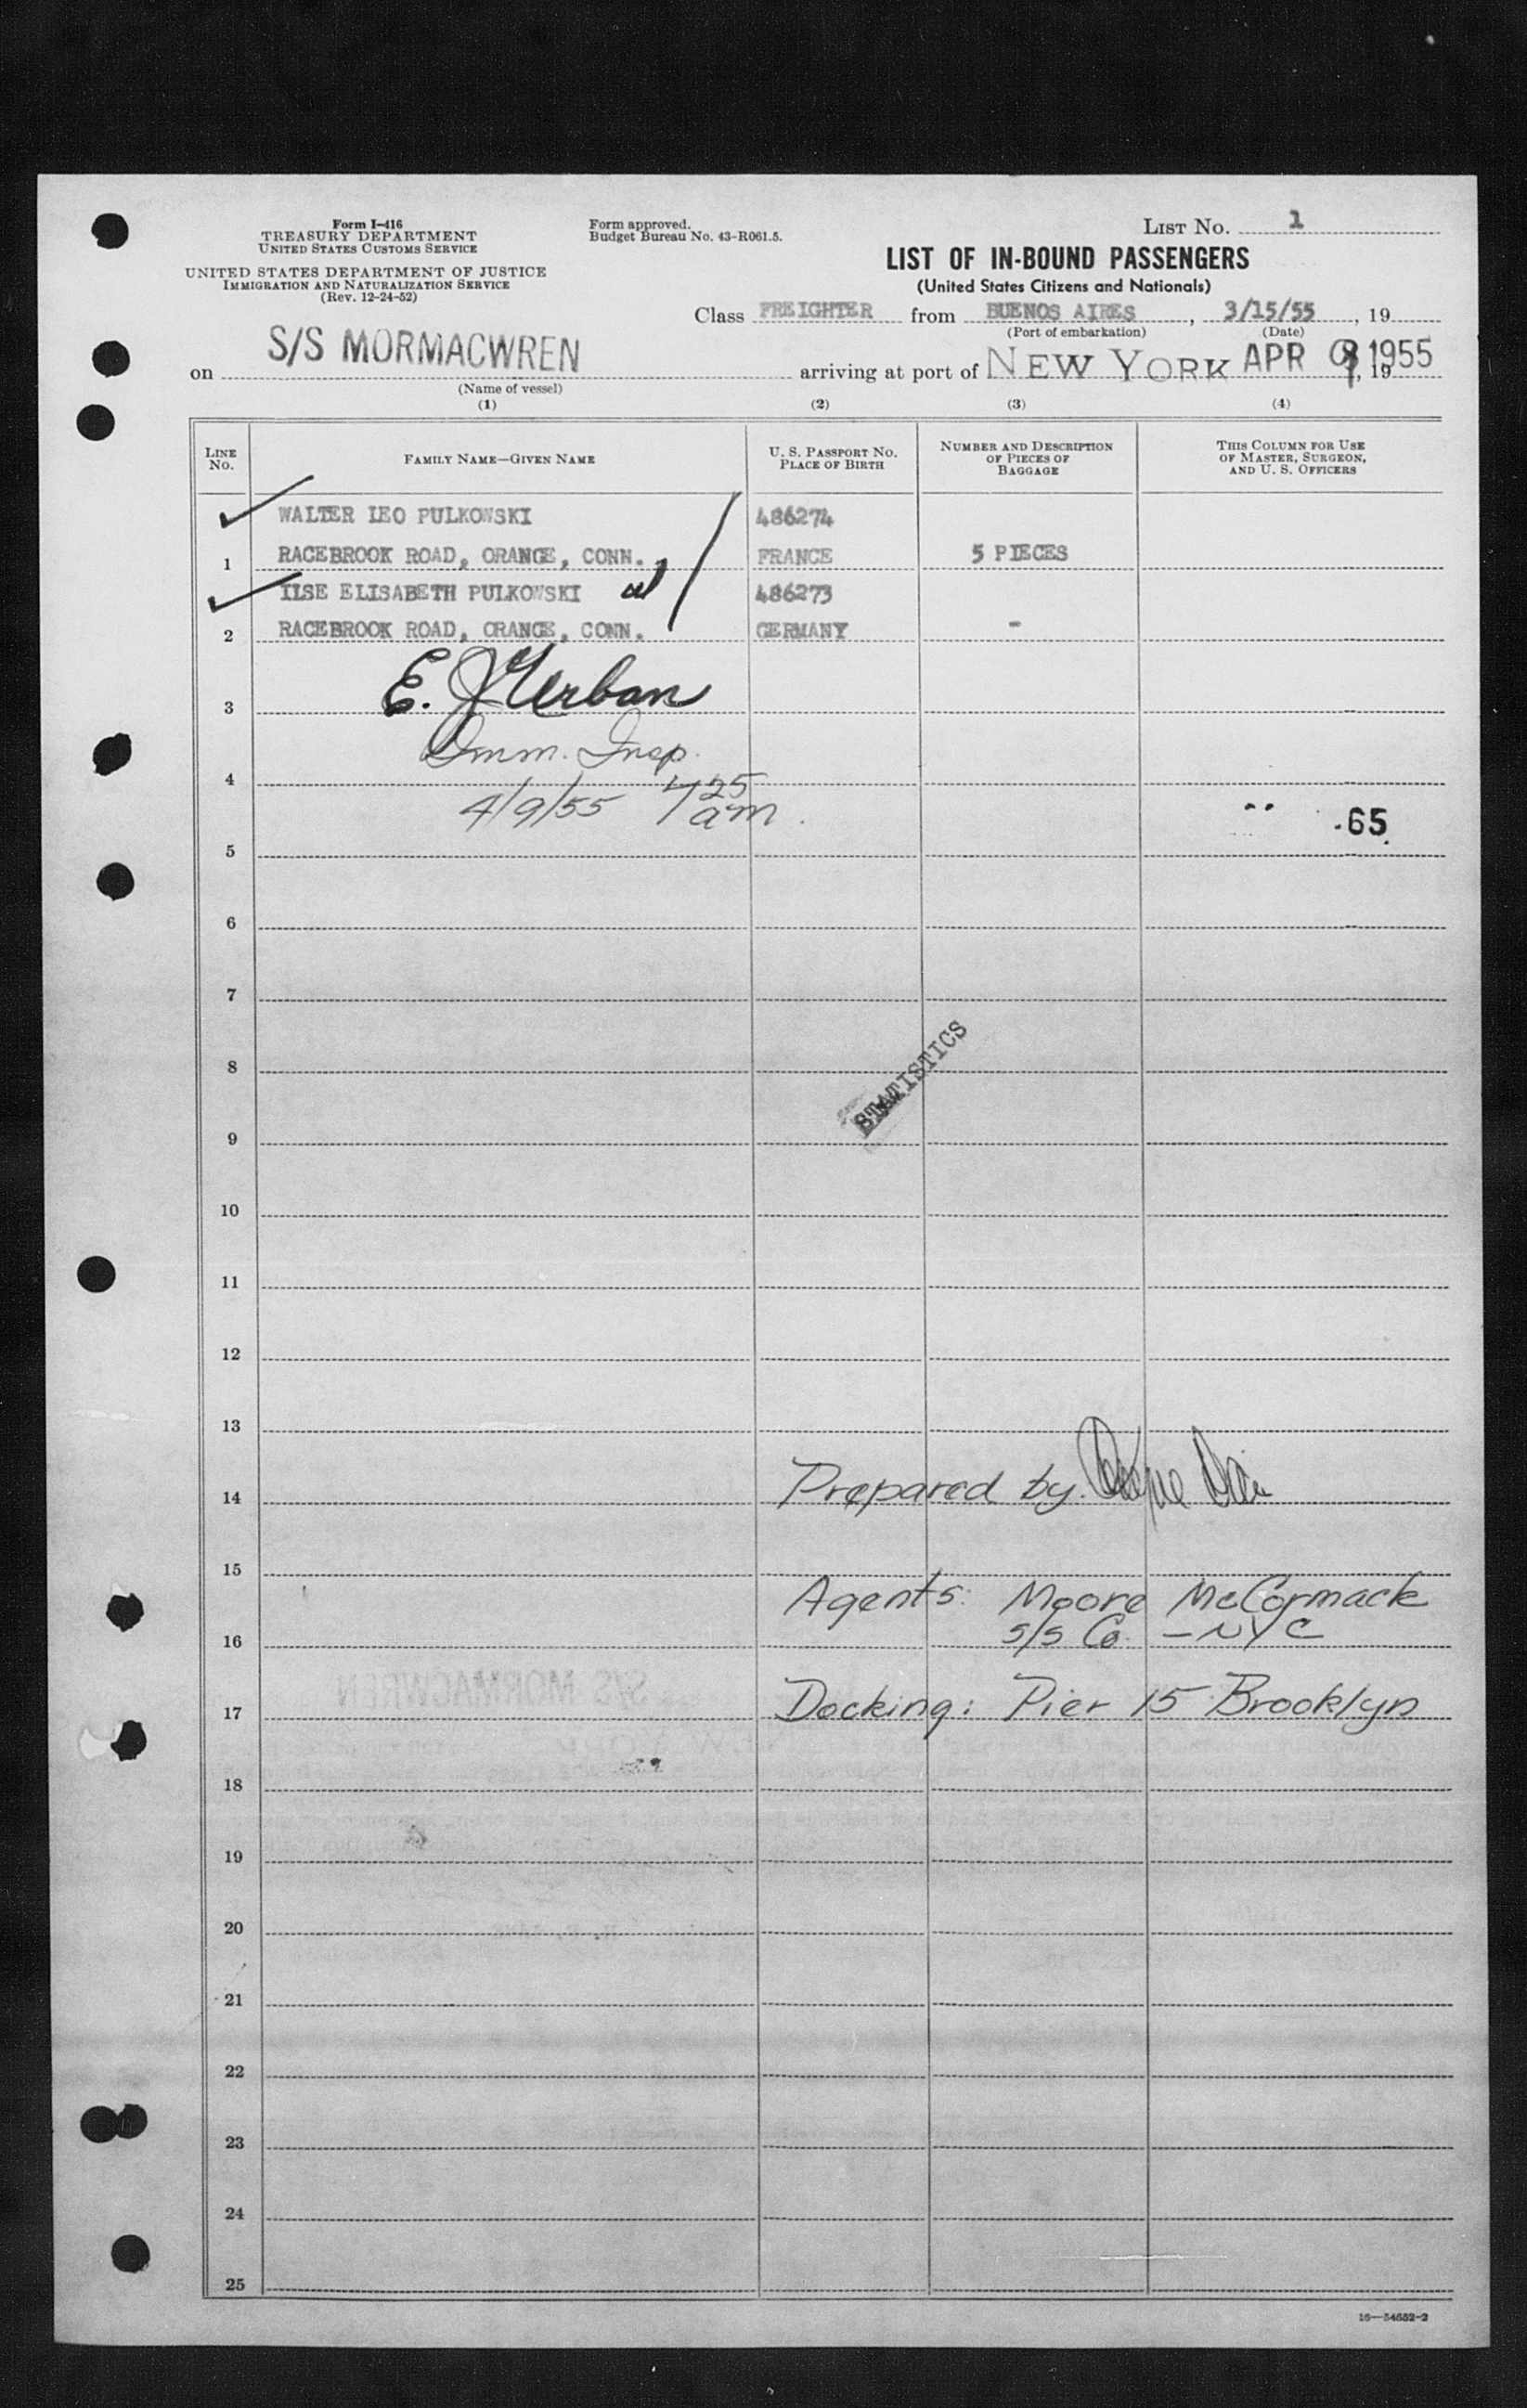 Form I-416
TREASURY DEPARTMENT
UNITED STATES CUSTOMS SERVICE
UNITED STATES DEPARTMENT OF JUSTICE
IMMIGRATION AND NATURALIZATION SERVICE
(Rev. 12-24-52)
Form approved.
Budget Bureau No. 43-R061.5.
LIST NO. 1
LIST OF IN-BOUND PASSENGERS
(United States Citizens and Nationals)
Class FREIGHTER from BUENOS AIRES, 3/15/55, 19
(Port of embarkation) (Date)
on S/S MORMACWREN arriving at port of NEW YORK APR 9 1955, 19
(Name of vessel)
(1) (2) (3) (4)
LINE NO. FAMILY NAME—GIVEN NAME U. S. PASSPORT NO. PLACE OF BIRTH NUMBER AND DESCRIPTION OF PIECES OF BAGGAGE THIS COLUMN FOR USE OF MASTER, SURGEON, AND U. S. OFFICERS
WALTER LEO PULKOWSKI 486274
1 RACEBROOK ROAD, ORANGE, CONN. FRANCE 5 PIECES
ILSE ELISABETH PULKOWSKI 486273
2 RACEBROOK ROAD, ORANGE, CONN. GERMANY -
3 E. J. Urban
4 Imm. Insp.
4/9/55 7 25 am
.65
5
6
7
8
STATISTICS
9
10
11
12
13
14 Prepared by
15
Agents: Moore McCormack
16 S/S Co. - NYC
17 Docking: Pier 15 Brooklyn
S/S MORMACWREN
18
19
20
21
22
23
24
25
16—54652-2